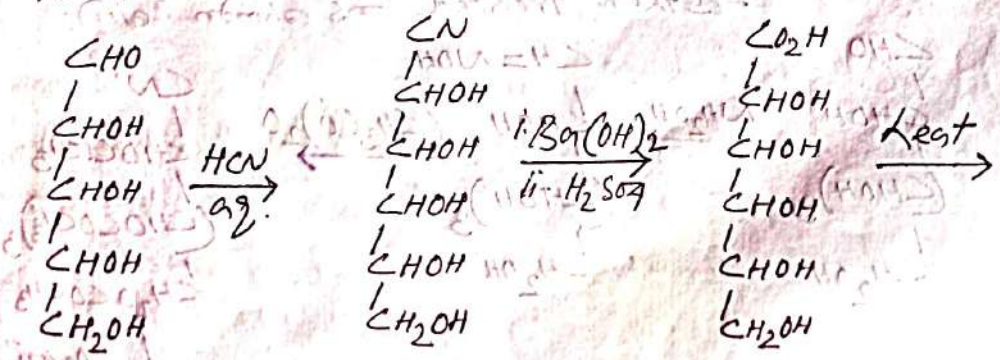 CHO
CHOH
CHOH
CHOH
CH₂OH
HCN
aq.
CN
CHOH
CHOH
CHOH
CHOH
CH₂OH
i. Ba(OH)₂
ii. H₂SO₄
CO₂H
CHOH
CHOH
CHOH
CHOH
CH₂OH
Heat